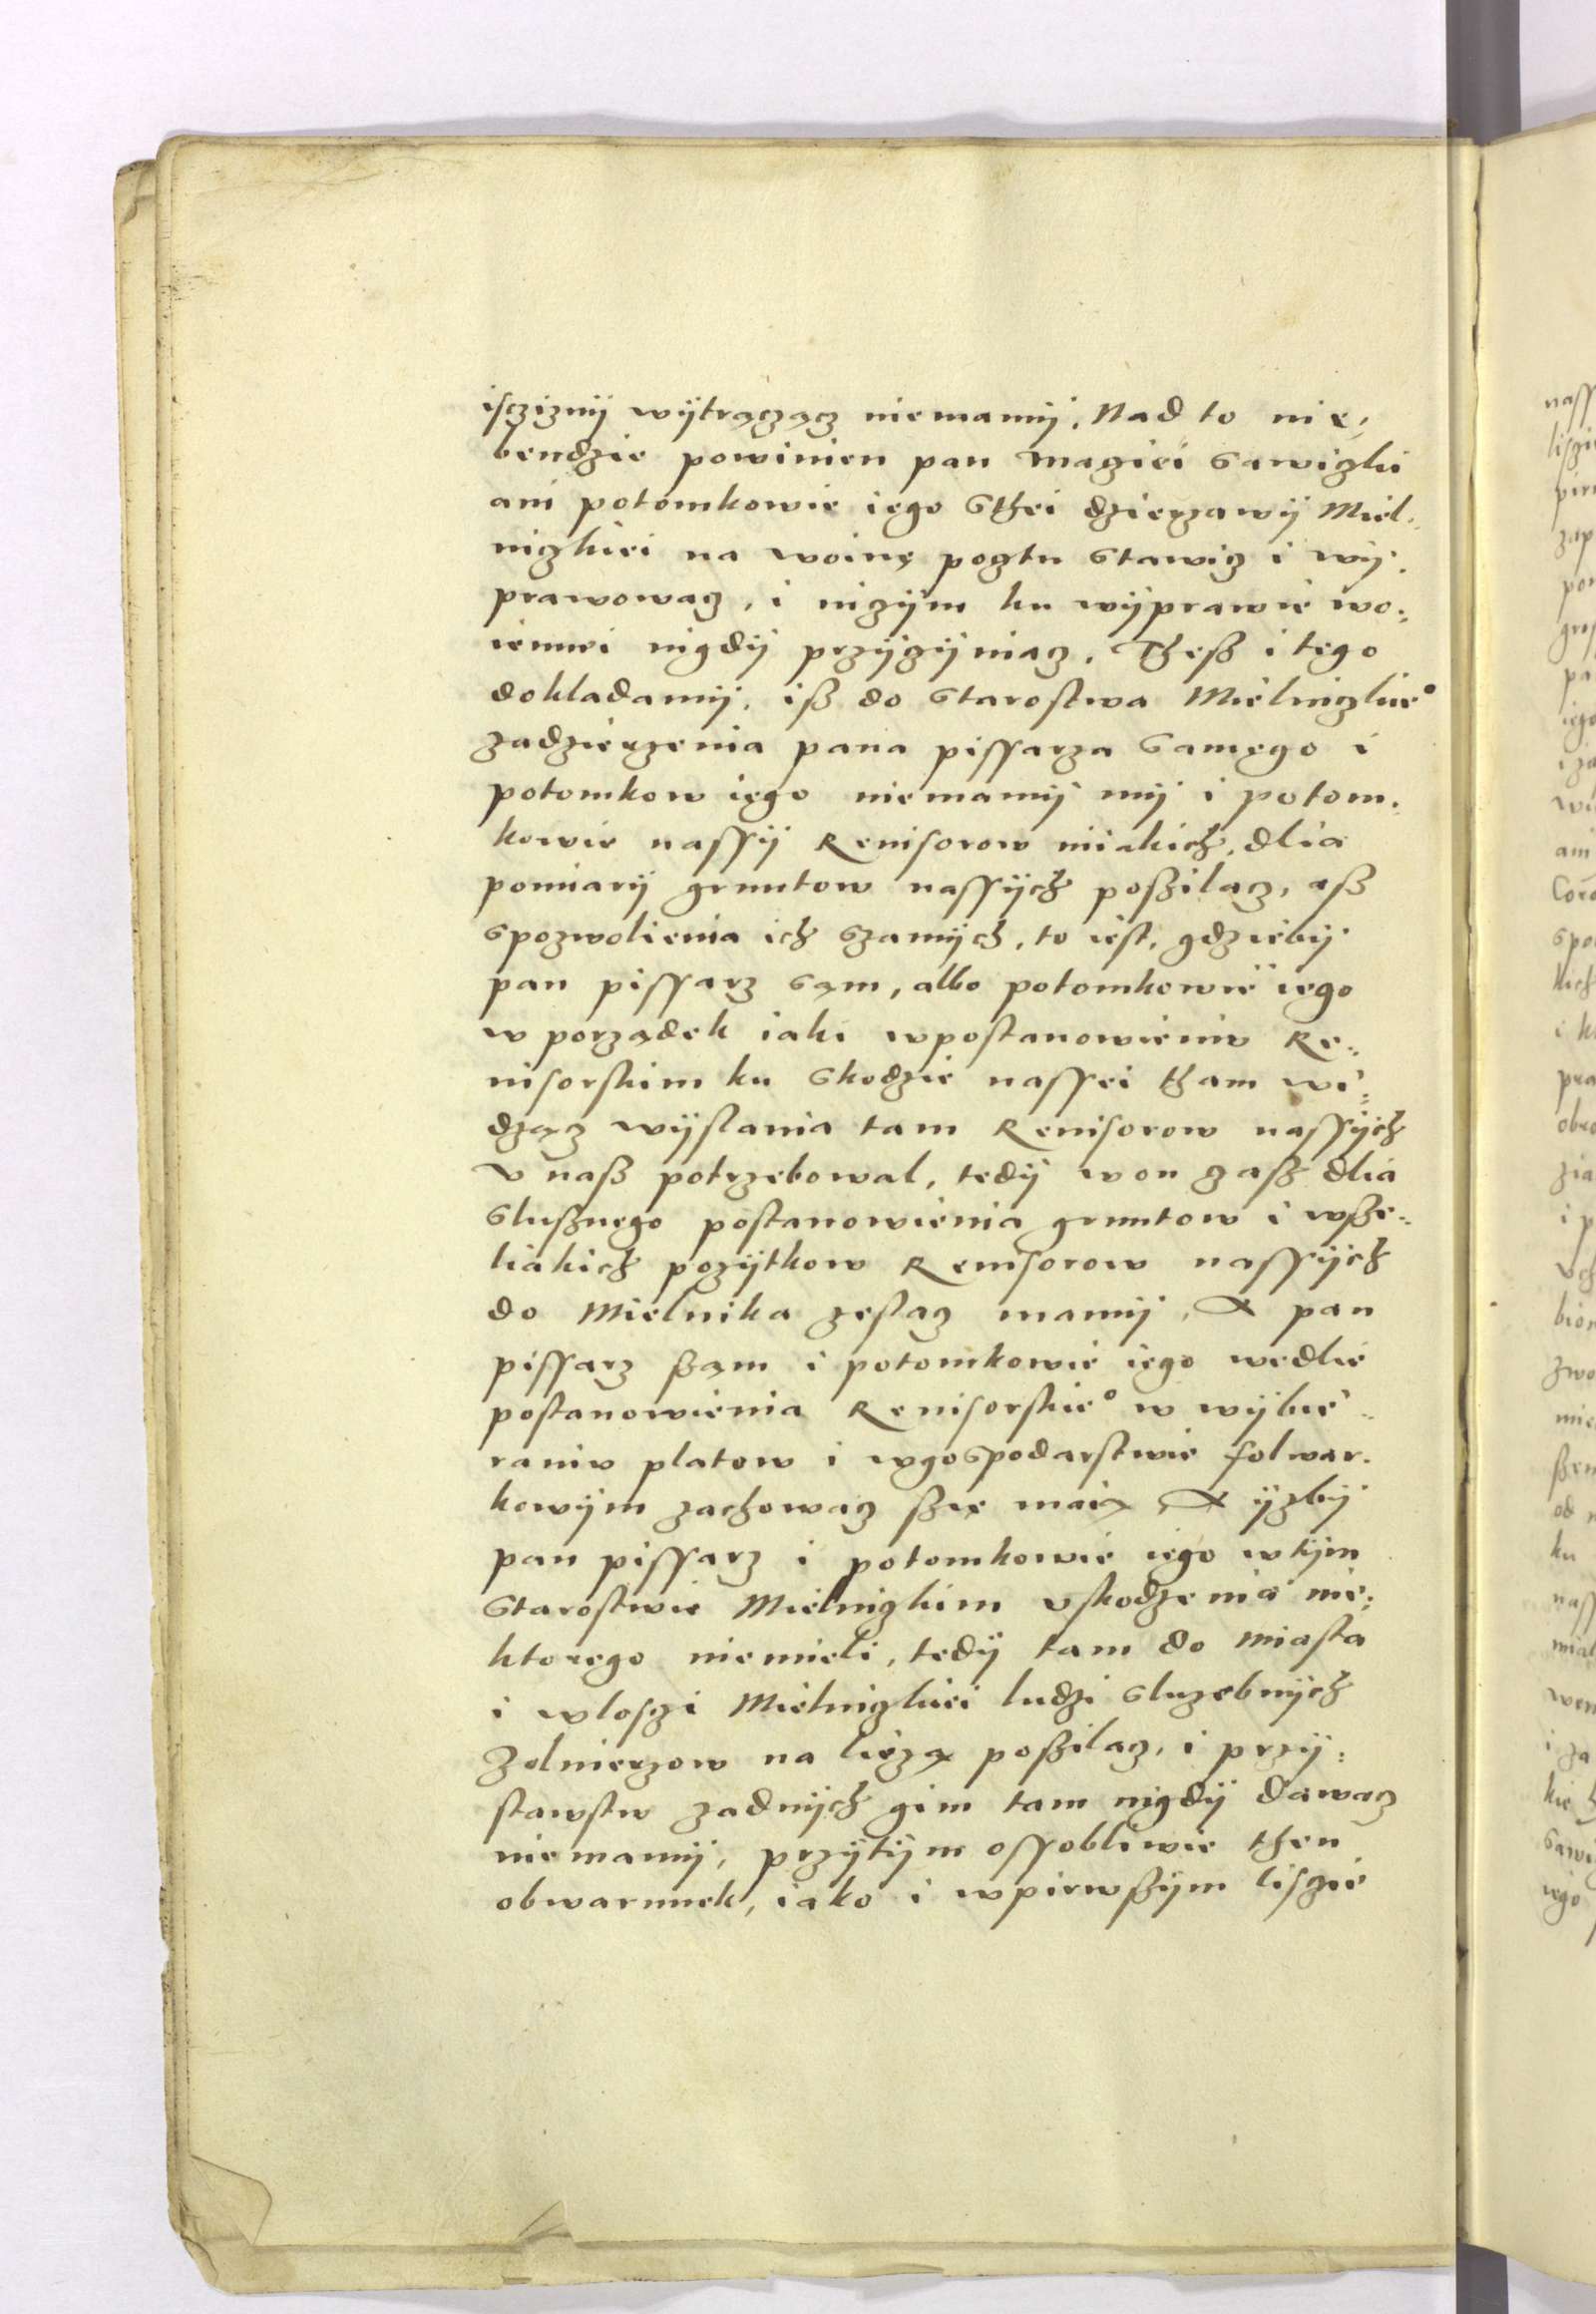 iscziznÿ wÿtrączącz niemamÿ, Nad to nie⸗
bendzie powinien pan Maciei Sawiczki
ani potomkowie iego Sthei dzierzawÿ Miel⸗
niczkiei na woinę pocztu Stawicz i wÿ⸗
prawowacz, i niczÿm ku wÿprawie wo⸗
iennei nigdÿ przÿczÿniacz. Theß i tego
dokladamÿ, iß do Starostwa Mielniczkieº
zadzierzenia pana pissarza Samego i
potomkow iego niemamÿ mÿ i potom⸗
kowie nassÿ Reuisorow niiakich, dlia
pomiarÿ gruntow nassÿch poßilacz, aß
Spozwolienia ich Szamÿch, to iest, gdziebÿ
pan pissarz Sąm, albo potomkowie iego
w porządek iaki wpostanowieniu Re⸗
uisorskim ku Skodzie nassei tham wi⸗
dząc wÿslania tam Reuisorow nassÿch
v naß potrzebowal, tedÿ won czaß dlia
Slußnego postanowienia gruntow i wße⸗
liakich pozÿtkow Reuisorow nassÿch
do Mielnika zeslacz mamÿ, A pan
pissarz ßąm i potomkowie iego wedlie
postanowienia Reuisorskieº w wÿbie⸗
raniu platow i wgospodarstwie folwar⸗
kowÿm zachowacz ßie maią A ÿzbÿ
pan pissarz i potomkowie iego wtÿm
Starostwie Mielniczkim vskodzenia nie⸗
ktorego niemieli, tedÿ tam do miasta
i wlosczi Mielniczkiei ludzi Sluzebnÿch
Zolnierzow na liezą poßilacz, i przÿ⸗
stawstw zadnÿch gim tam nigdÿ dawacz
niemamÿ, przÿtÿm ossobliwie then
obwarunek, iako i wpierwßÿm lisczie